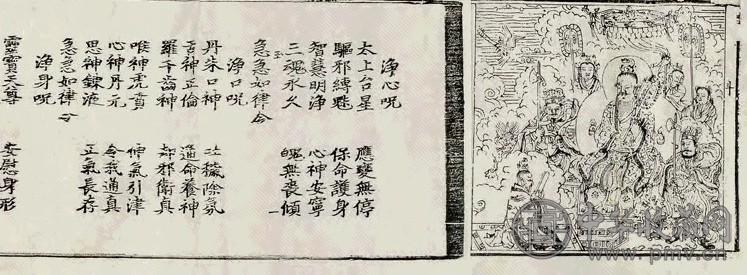 淨心咒
太上台星 應變無停
驅邪縛魅 保命護身
智慧明淨 心神安寧
三魂永久 魄無喪傾
急急如律令 一
淨口咒
丹朱口神 吐穢除氛
舌神正倫 通命養神
羅千齒神 却邪衛真
神虎賁 氣引津
心神丹元 令我通真
思神鍊液 氣長存
急急如律令
淨身咒
靈寶天尊 安慰身形
中华收藏网
www.pmv.cn